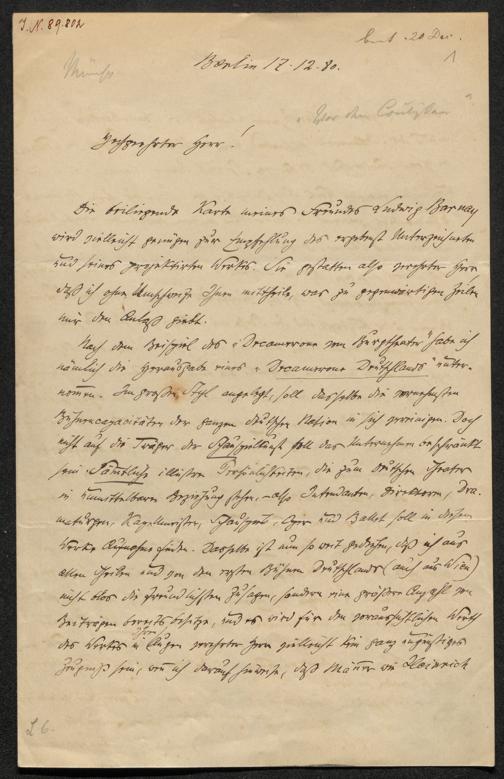 J. N. 89.802
20 Dec.
1
Berlin 17.12.80.
Münch
"Vor den Coulissen"
Hochgeehrter Herr!
Die beiliegende Karte meines Freundes Ludwig Barnay
wird vielleicht genügen zur Empfehlung des ergebenst Unterzeichneten
und seines projektirten Werkes. Sie gestatten also verehrter Herr
daß ich ohne Umschweife Ihnen mittheile, was zu gegenwärtigen Zeilen
mir den Anlaß giebt.
Nach dem Beispiel des "Decamerone vom Burgtheater" habe ich
nämlich die Herausgabe eines "Decamerone Deutschlands" unter-
nommen. Im großen Styl angelegt, soll dasselbe die vornehmsten
Bühnencapacitäten der ganzen deutschen Nation in sich vereinigen. Doch
nicht auf die Träger der Schauspielkunst soll das Unternehmen beschränkt
sein. Sämtliche illustre Persönlichkeiten, die zum deutschen Theater
in unmittelbarer Beziehung stehen, – also Intendanten, Direktoren, Dra-
maturgen, Kapellmeister, Schauspiel, Oper und Ballet soll in diesem
Werke Aufnahme finden. Dasselbe ist nun so weit gediehen, daß ich aus
allen Theilen und von den ersten Bühnen Deutschlands (auch aus Wien)
nicht blos die freundlichsten Zusagen, sondern eine größere Anzahl von
Beiträgen bereits besitze, und es wird für den voraussichtlichen Werth
des Werkes in Ihren Augen verehrter Herr vielleicht kein ganz ungünstiges
Zeugniß sein, wenn ich darauf hinweise, daß Männer wie Heinrich
L 6.